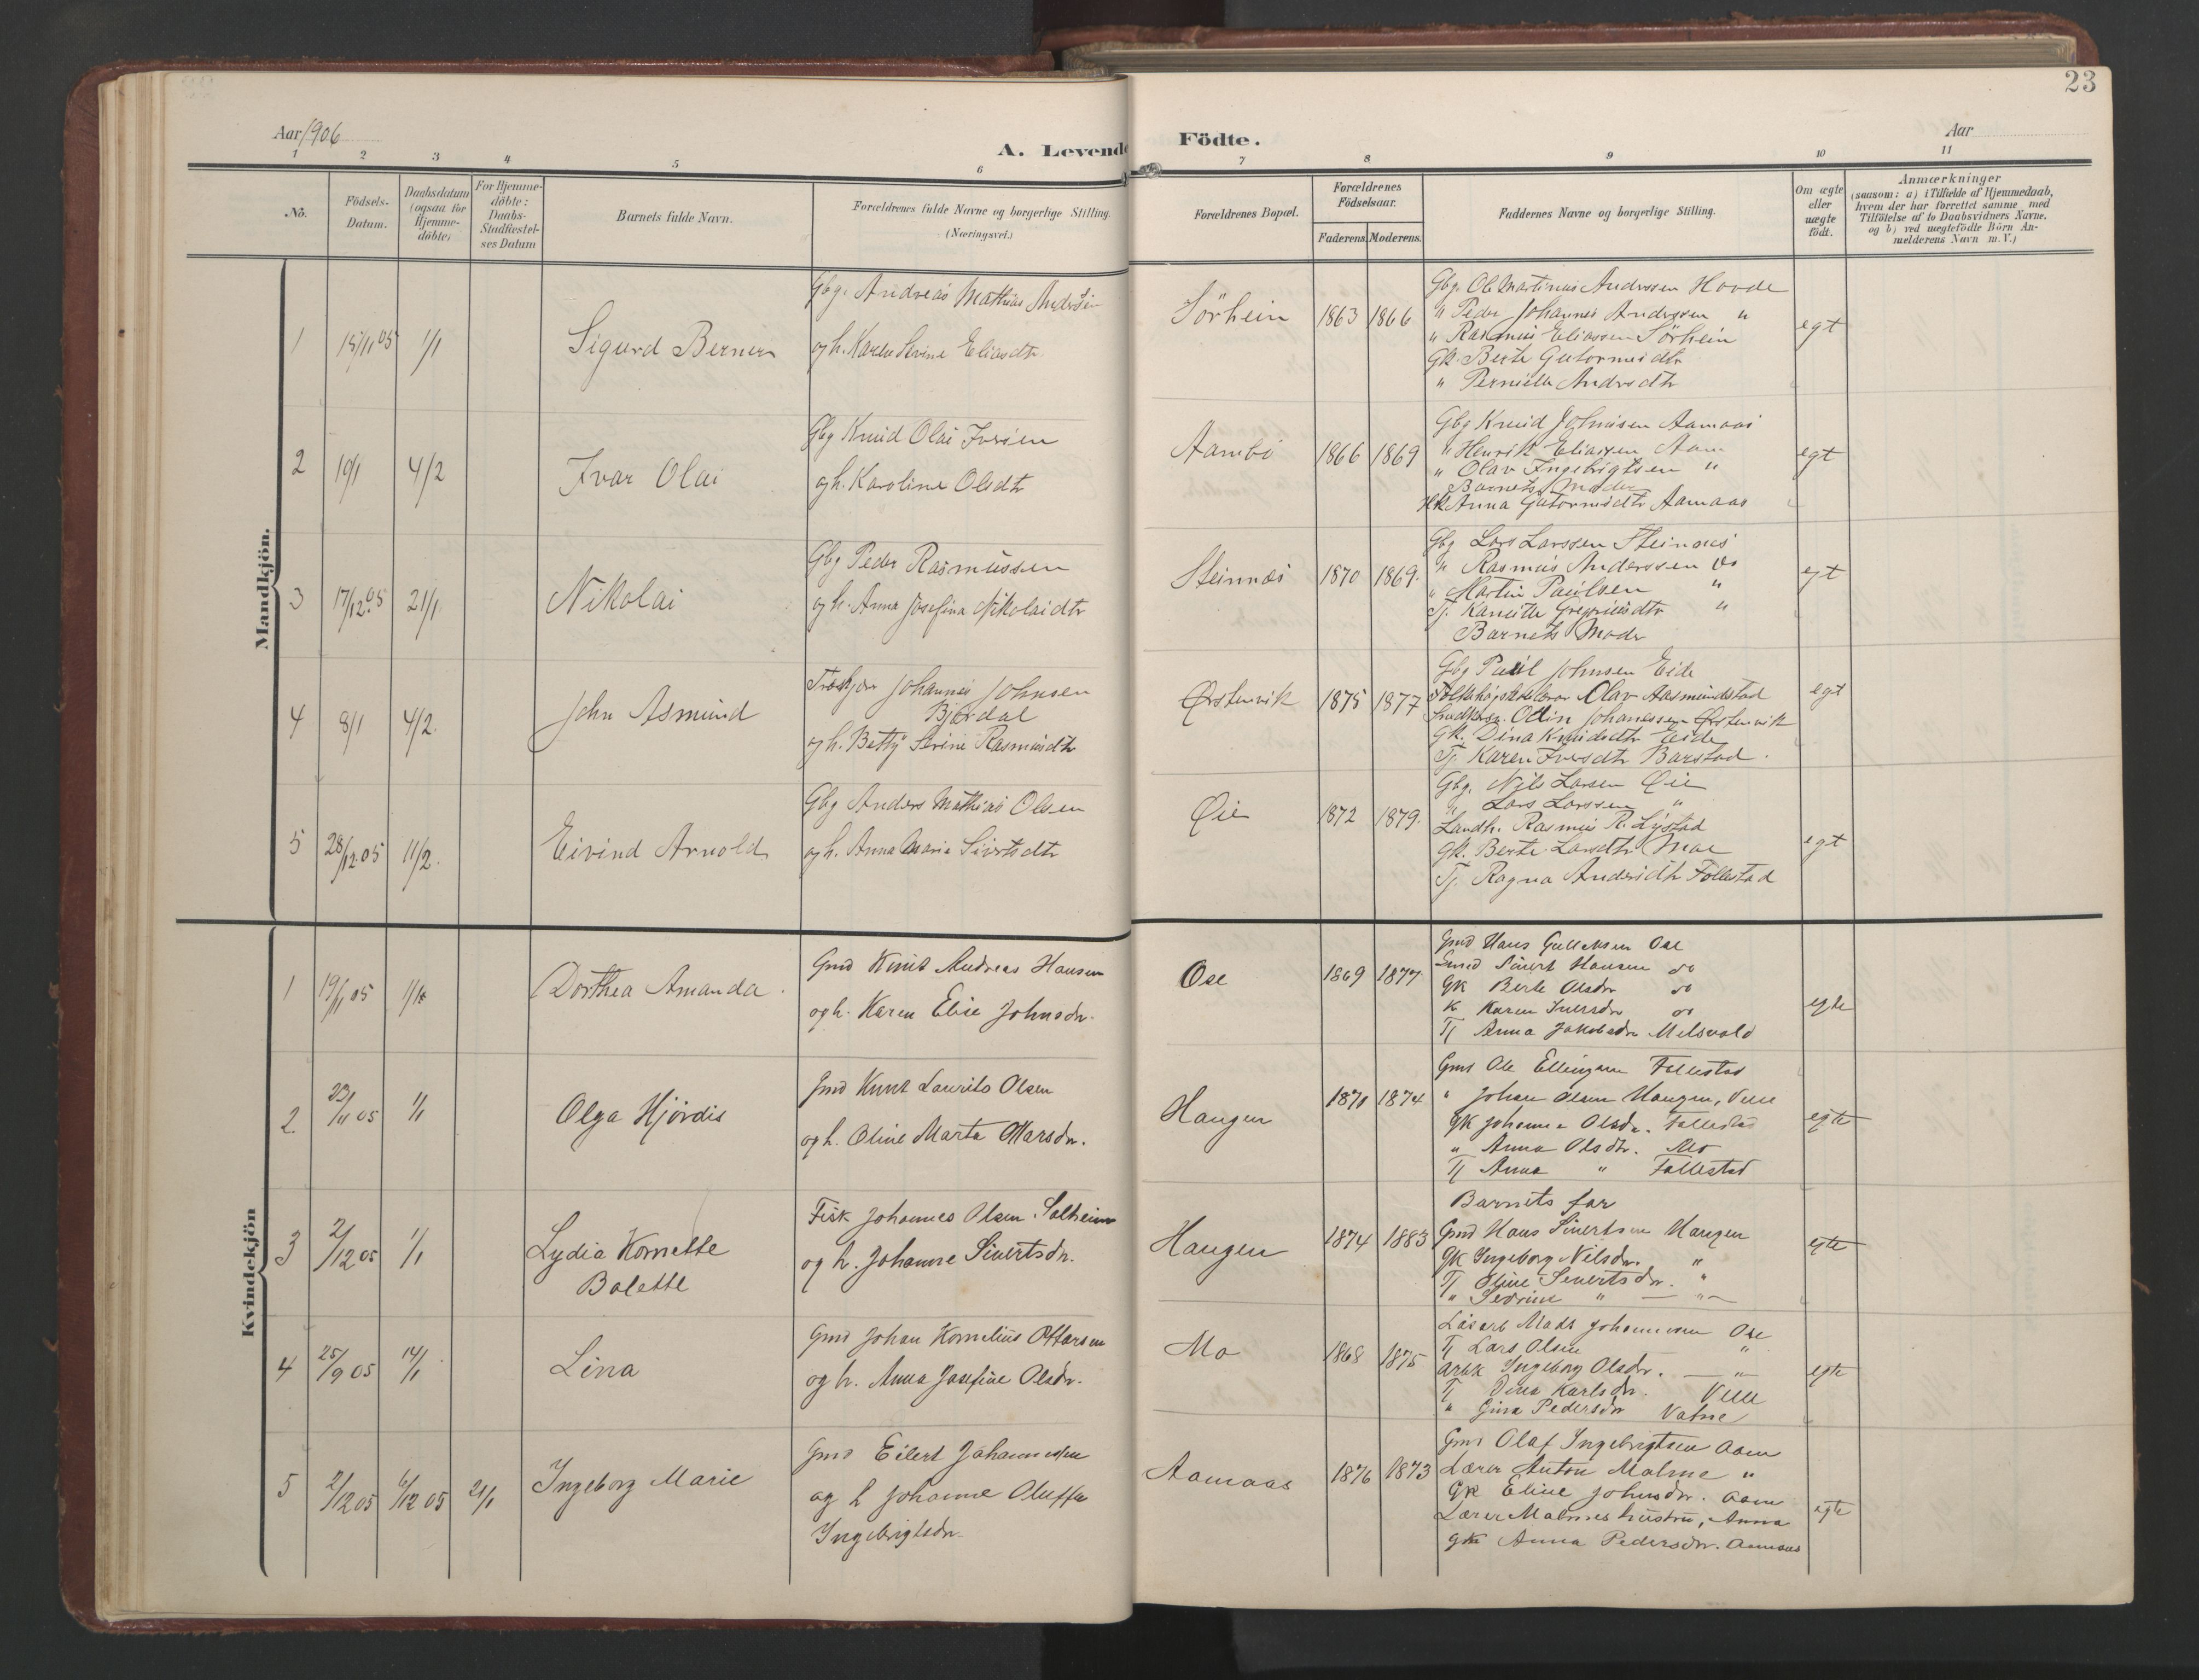 23
Aar 1906
A. Levende Födte.
Aar
1 2 3 4 5 6 7 8 9 10 11
No.
Födsels-
Datum.
Daabsdatum
(ogsaa for
Hjemme-
döbte)
For Hjemme-
döbte:
Daabs-
Stadfæstel-
ses Datum
Barnets fulde Navn.
Forældrenes fulde Navne og borgerlige Stilling.
(Næringsvei.)
Forældrenes Bopæl.
Forældrenes
Födselsaar.
Faderens. Moderens.
Faddernes Navne og borgerlige Stilling.
Om ægte
eller
uægte
födt.
Anmærkninger
(saasom: a) i Tilfælde af Hjemmedaab,
hvem der har forrettet samme med
Tilföielse af to Daabsvidners Navne,
og b) ved uægtefödte Börn An-
melderens Navn m.V.)
Mandkjön.
1
15/11 05
1/1
Sigurd Berner
Gbg. Andreas Mathias Andersen
og h. Karen Sevine Eliasdtr.
Sörhein
1863 1866
Gbg. Ole Martinus Anderssen Hovde
" Peder Johannes Anderssen "
" Rasmus Eliassen Sörhein
Gk. Berte Gutormsdtr
" Pernille Andrsdtr
egt
2
19/1
4/2
Ivar Olai
Gbg Knud Olai Iversen
og h. Karoline Olsdtr
Aambö
1866 1869
Gbg Knud Johnsen Aamaas
" Henrik Eliassen Aam
" Olav Ingebrigtsen "
Barnets Moder
Anna Gutormsdtr Aamaas
egt
3
17/12 05
21/1
Nikolai
Gbg Peder Rasmussen
og h. Anna Josefina Nikolaidtr
Steinnæs
1870 1869.
Gbg Lars Larssen Steinnæs
" Rasmus Anderssen do
" Martin Paulsen "
Tj. Kamilla Gregoriusdtr "
Barnets Moder
egt
4
8/1
4/2.
John Asmund
Johannes Johnsen
Bjørdal
og h. Betty Serine Rasmusdtr
Ørstenvik
1875 1877
Gbg Paul Johnsen Eide
Olav Aasmundstad
Odin Johanessen Ørstenvik
Gk. Dina Knudsdtr Eide
Tj. Karen Iversdtr Barstad.
egt
5
28/12.05
11/2.
Eivind Arnold
Gbg Anders Mathias Olsen
og h. Anna Maria Sivertsdtr
Øie
1872 1879.
Gbg. Nils Larsen Øie
" Lars Larssen "
Landh. Rasmus R. Lystad
Gk. Berte Larsdtr Moe
Tj. Ragna Andersdtr Follestad
egt
Kvindekjön
1
19/11 05
Dorthea Amanda
Gmd Knut Andreas Hansen
og h. Karen Elise Johnsdr.
Ose
1869 1877.
Gmd Hans Gulleksen Ose
Sivert Hansen do
Gk Berte Olsdr do
K Karen Iversdr do
Tj Anna Jakobsdr Melsvold
egte
2.
23/11 05
1/1
Olga Hjördis
Gmd Knut Laurits Olsen
og h. Oline Marta Ottarsdr.
Haugen
1871 1874
Gmd Ole Ellingsen Follestad
" Johan Olsen Haugen, Velle
Gk Johanna Olsdr. Follestad
" Anna Olsdtr. Mo
Tj Anna " Follestad
egte
3
2/12 05
1/1
Lydia Kornette
Bolette
Fisk Johannes Olsen Solheim
og h. Johanne Sivertsdr.
Haugen
1874 1883
Barnets far
Gmd Hans Sivertsen Haugen
Gk Ingeborg Nilsdr. "
Tj Oline Sivertsdr. "
" Sevrine " — " —
egte
4
25/9 05
14/1
Lina
Gmd Johan Kornelius Ottarsen
og h. Anna Josefine Olsdr.
Mo
1868 1875
Mads Johannesen Ose
Tj Lars Olsen "
arbk Ingeborg Olsdr. — " —
Tj Dina Karlsdr. Velle
" Gina Pedersdr Vatne
egte
5
2/12 05
6/12 05
21/1
Ingeborg Marie
Gmd Eilert Johannessen
og h Johanne Oluffa
Ingebrigtsdr.
Aamaas
1876 1873
Gmd Olaf Ingebrigtsen Aam
Lærer Anton Malme "
Gk Eline Johnsdr. Aam
Lærer Malmes hustru, Anna
gk Anna Pedersdr. Aamaas
egte